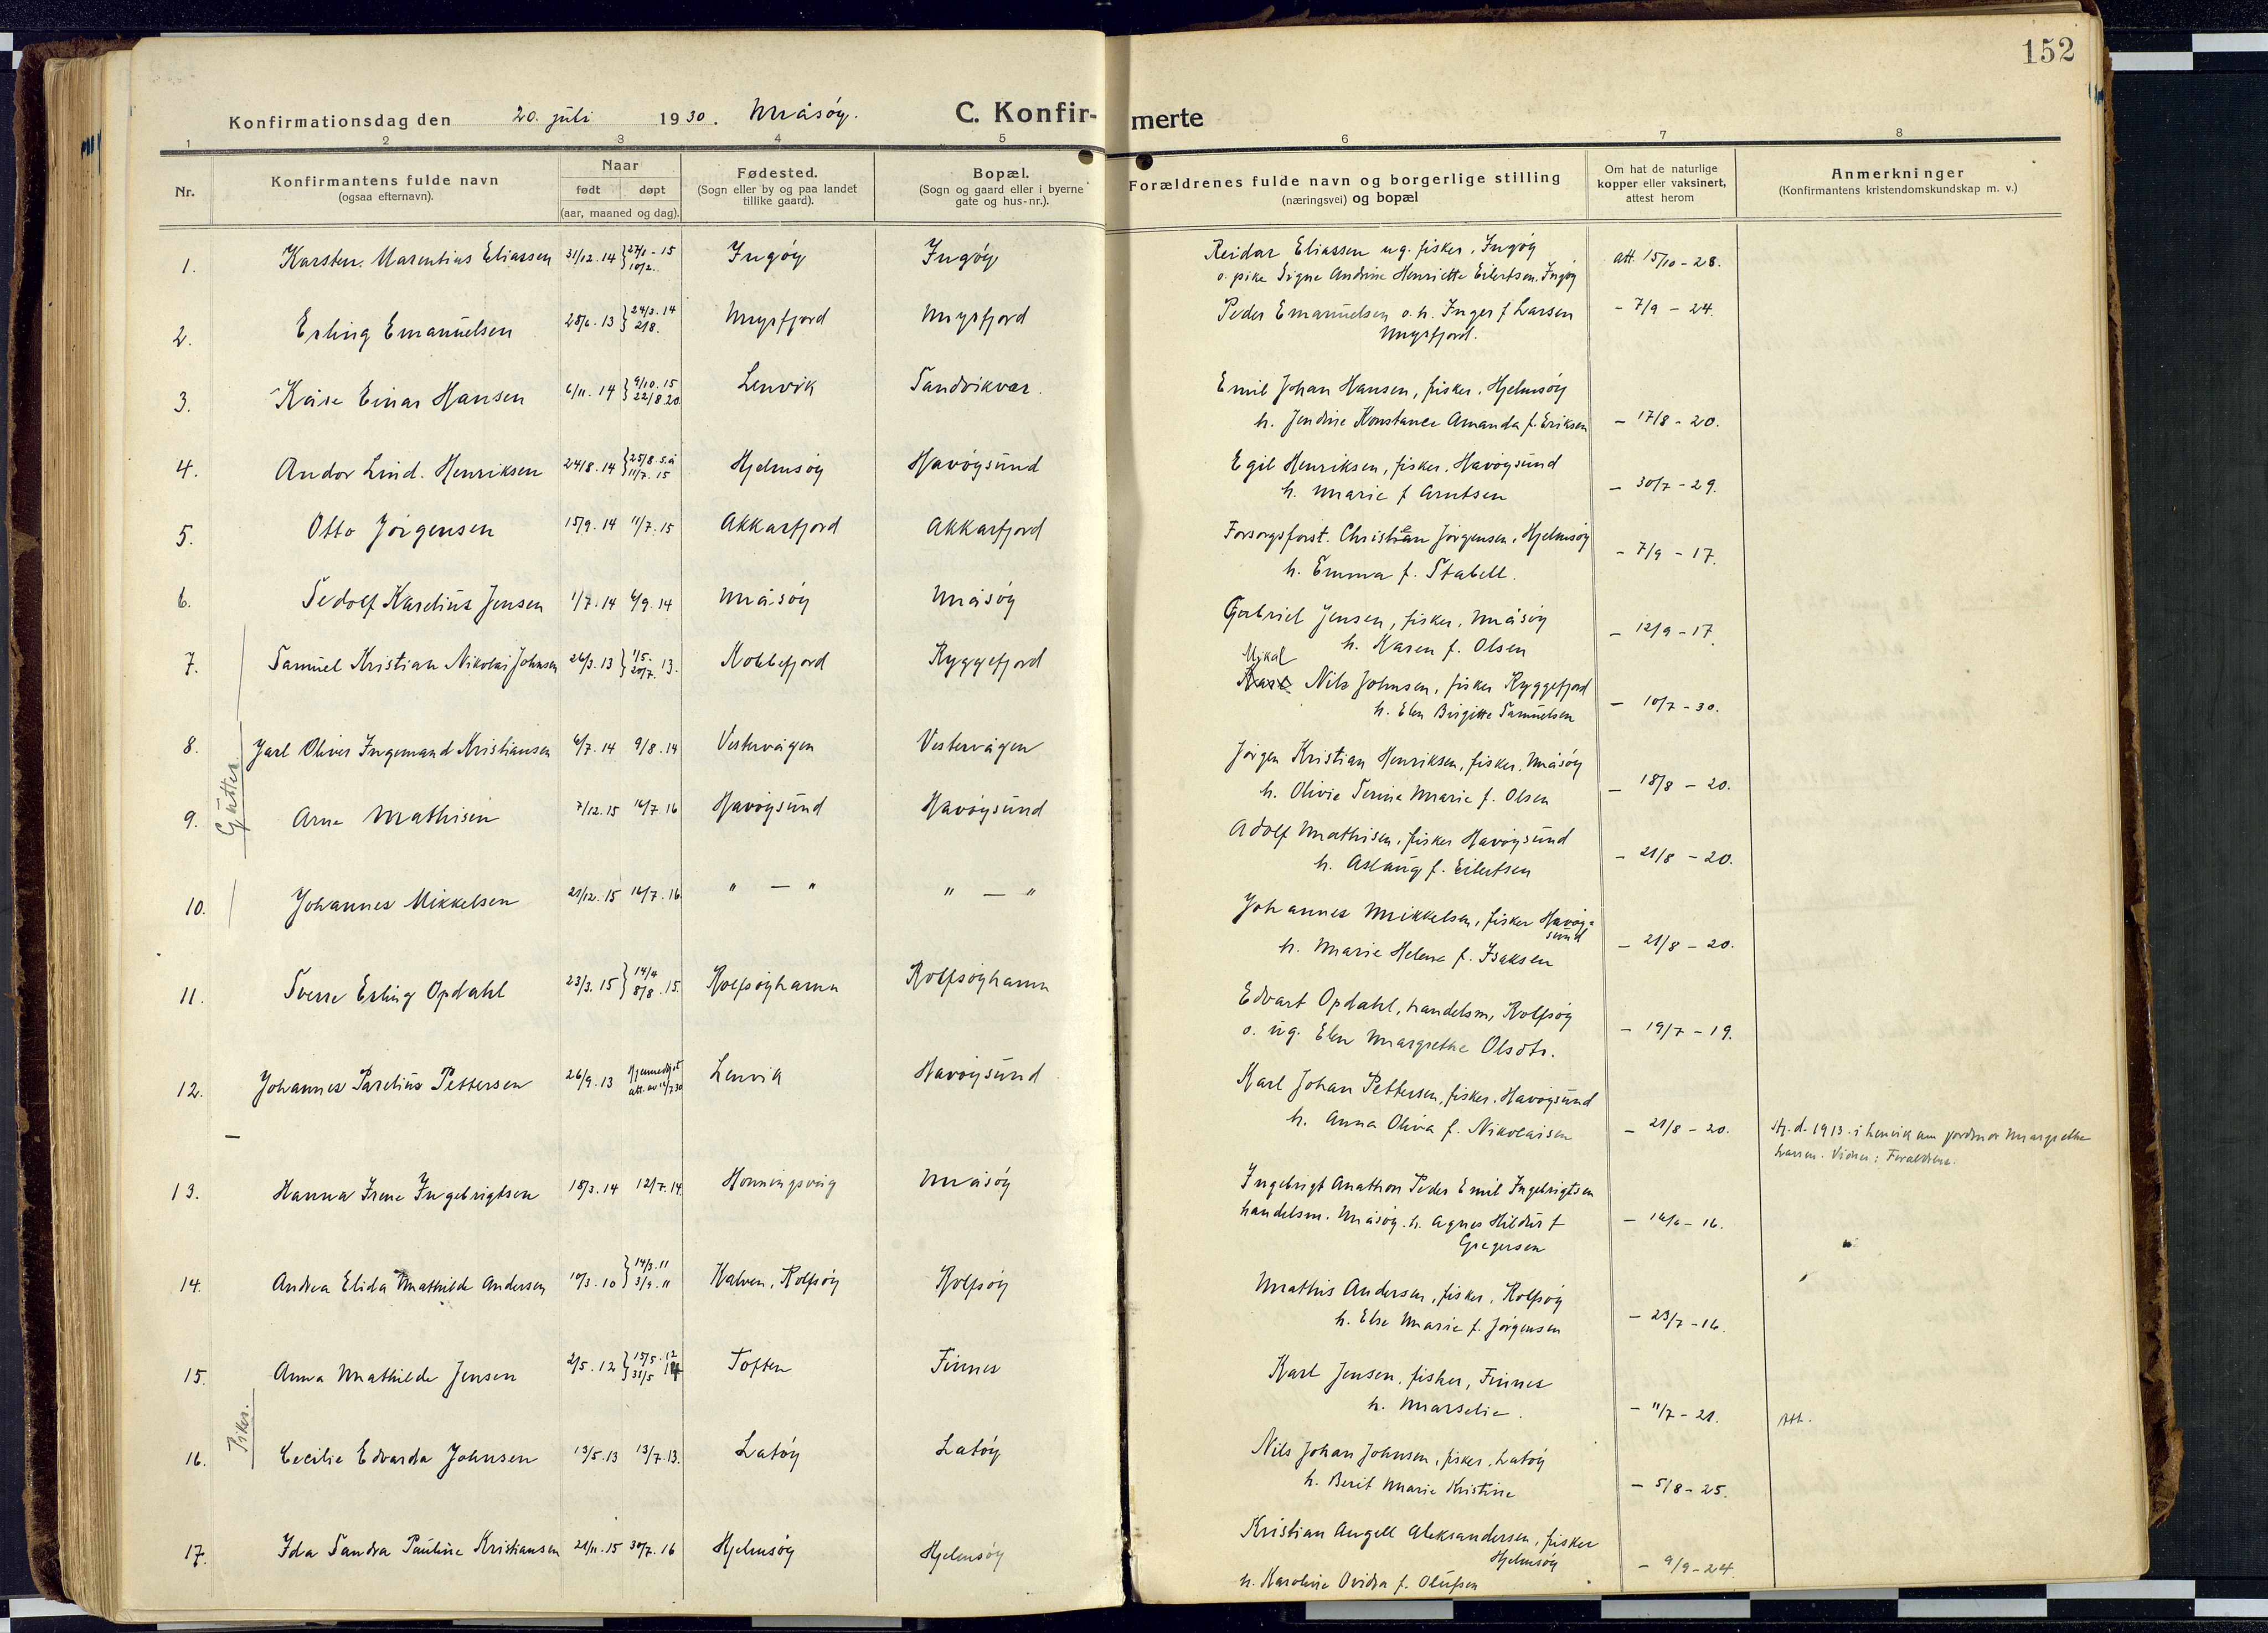 152
Konfirmationsdag den 20. juli 1930. Måsøy. C. Konfirmerte
1 2 3 4 5 6 7 8
Nr.
Konfirmantens fulde navn
(ogsaa efternavn).
Naar
født døpt
(aar, maaned og dag).
Fødested.
(Sogn eller by og paa landet
tillike gaard).
Bopæl.
(Sogn og gaard eller i byerne
gate og hus-nr.).
Forældrenes fulde navn og borgerlige stilling
(næringsvei) og bopæl
Om hat de naturlige
kopper eller vaksinert,
attest herom
Anmerkninger
(Konfirmantens kristendomskundskap m. v.)
1. Karsten Marentius Eliassen 31/12.14 - 15 10/2. Ingøy Ingøy
Reidar Eliassen ug. fisker, Ingøy
o. pike Signe Andrine Henriette Eilertsen, Ingøy
att. 15/10 - 28.
2. Erling Emanuelsen 28/6.13 24/3.14 2/8. Myrfjord Myrfjord
Peder Emanuelsen o. h. Inger f Larsen
Myrfjord.
- 7/9 - 24.
3. Kåre Einar Hansen 6/11.14 9/10.15 22/8 20. Lenvik Sandvikvær.
Emil Johan Hansen, fisker, Hjelmsøy
h. Jendine Konstance Amanda f. Eriksen
- 17/8 - 20.
4. Andor Lind. Henriksen 24/8.14 25/8 s.å 11/7.15 Hjelmsøy Havøysund
Egil Henriksen, fisker, Havøysund
h. Marie f Arntsen
- 30/7 - 29.
5. Otto Jørgensen 15/9.14 11/7.15 Akkarfjord Akkarfjord
Forsorgsforst. Christian Jørgensen, Hjelmsøy
h. Emma f. Stabell.
- 7/9 - 17.
6. Sedolf Karelius Jensen 1/7.14 6/9.14 Måsøy Måsøy
Gabriel Jensen, fisker, Måsøy
h. Karen f. Olsen
- 12/9 - 17.
7. Samuel Kristian Nikolai Johnsen 26/3.13 1/5. 20/7.13. Kobbefjord Ryggefjord
Mikal
Nils Johnsen, fisker Ryggefjord
h. Elen Birgitte Samuelsen
- 10/7 - 30.
Gutter
8. Jarl Oliver Ingemand Kristiansen 6/7.14 9/8.14 Vestervågen Vestervågen
Jørgen Kristian Henriksen, fisker, Måsøy
h. Olivie Serine Marie f. Olsen
- 18/8 - 20.
9. Arne Mathisen 7/12.15 16/7.16 Havøysund Havøysund
Adolf Mathisen, fisker Havøysund
h. Aslaug f. Eilertsen
- 21/8 - 20.
10. Johannes Mikkelsen 21/12.15 16/7.16. " — " " — "
Johannes Mikkelsen, fisker Havøy-
sund
h. Marie Helene f. Isaksen
- 21/8 - 20.
11. Sverre Erling Opdahl 23/3.15 14/4 8/8.15. Rolfsøyhamn Rolfsøyhamn
Edvart Opdahl, handelsm, Rolfsøy
o. ug. Elen Margrethe Olsdtr.
- 19/7 - 19.
12. Johannes Parelius Pettersen 26/9.13 Hjemmedøpt Lenvik Havøysund
Karl Johan Pettersen, fisker, Havøysund
h. Anna Oliva f. Nikolaisen
- 21/8 - 20.
Hj. d. 1913. i Lenvik av jordmor Margrethe
Larsen. Vidner: Forældrene.
13. Hanna Irene Ingebrigtsen 18/3.14 12/7.14. Honningsvåg Måsøy
Ingebrigt Anathon Peder Emil Ingebrigtsen
handelsm. Måsøy. h. Agnes Hildur f
Gregersen
- 16.
14. Andrea Elida Mathilde Andersen 10/3.10 14/3.11 3/9.11 Kalven, Rolfsøy Rolfsøy
Mathis Andersen, fisker, Rolfsøy
h. Else Marie f. Jørgensen
- 23/7 - 16.
15. Anna Mathilde Jensen 2/5.12 15/5.12 31/5 14 Toften Finnes
Karl Jensen, fisker, Finnes
h. Marselie.
- 11/7 - 21.
Att.
Piker.
16. Cecilie Edvarda Johnsen 13/5.13 13/7.13. Latøy Latøy
Nils Johan Johnsen, fisker, Latøy
h. Berit Marie Kristine
- 5/8 - 25.
17. Ida Sandra Pauline Kristiansen 21/11.15 30/7.16 Hjelmsøy Hjelmsøy
Kristian Angell Aleksandersen, fisker
Hjelmsøy
h. Karoline Ovidia f. Olufsen
- 9/9 - 24.